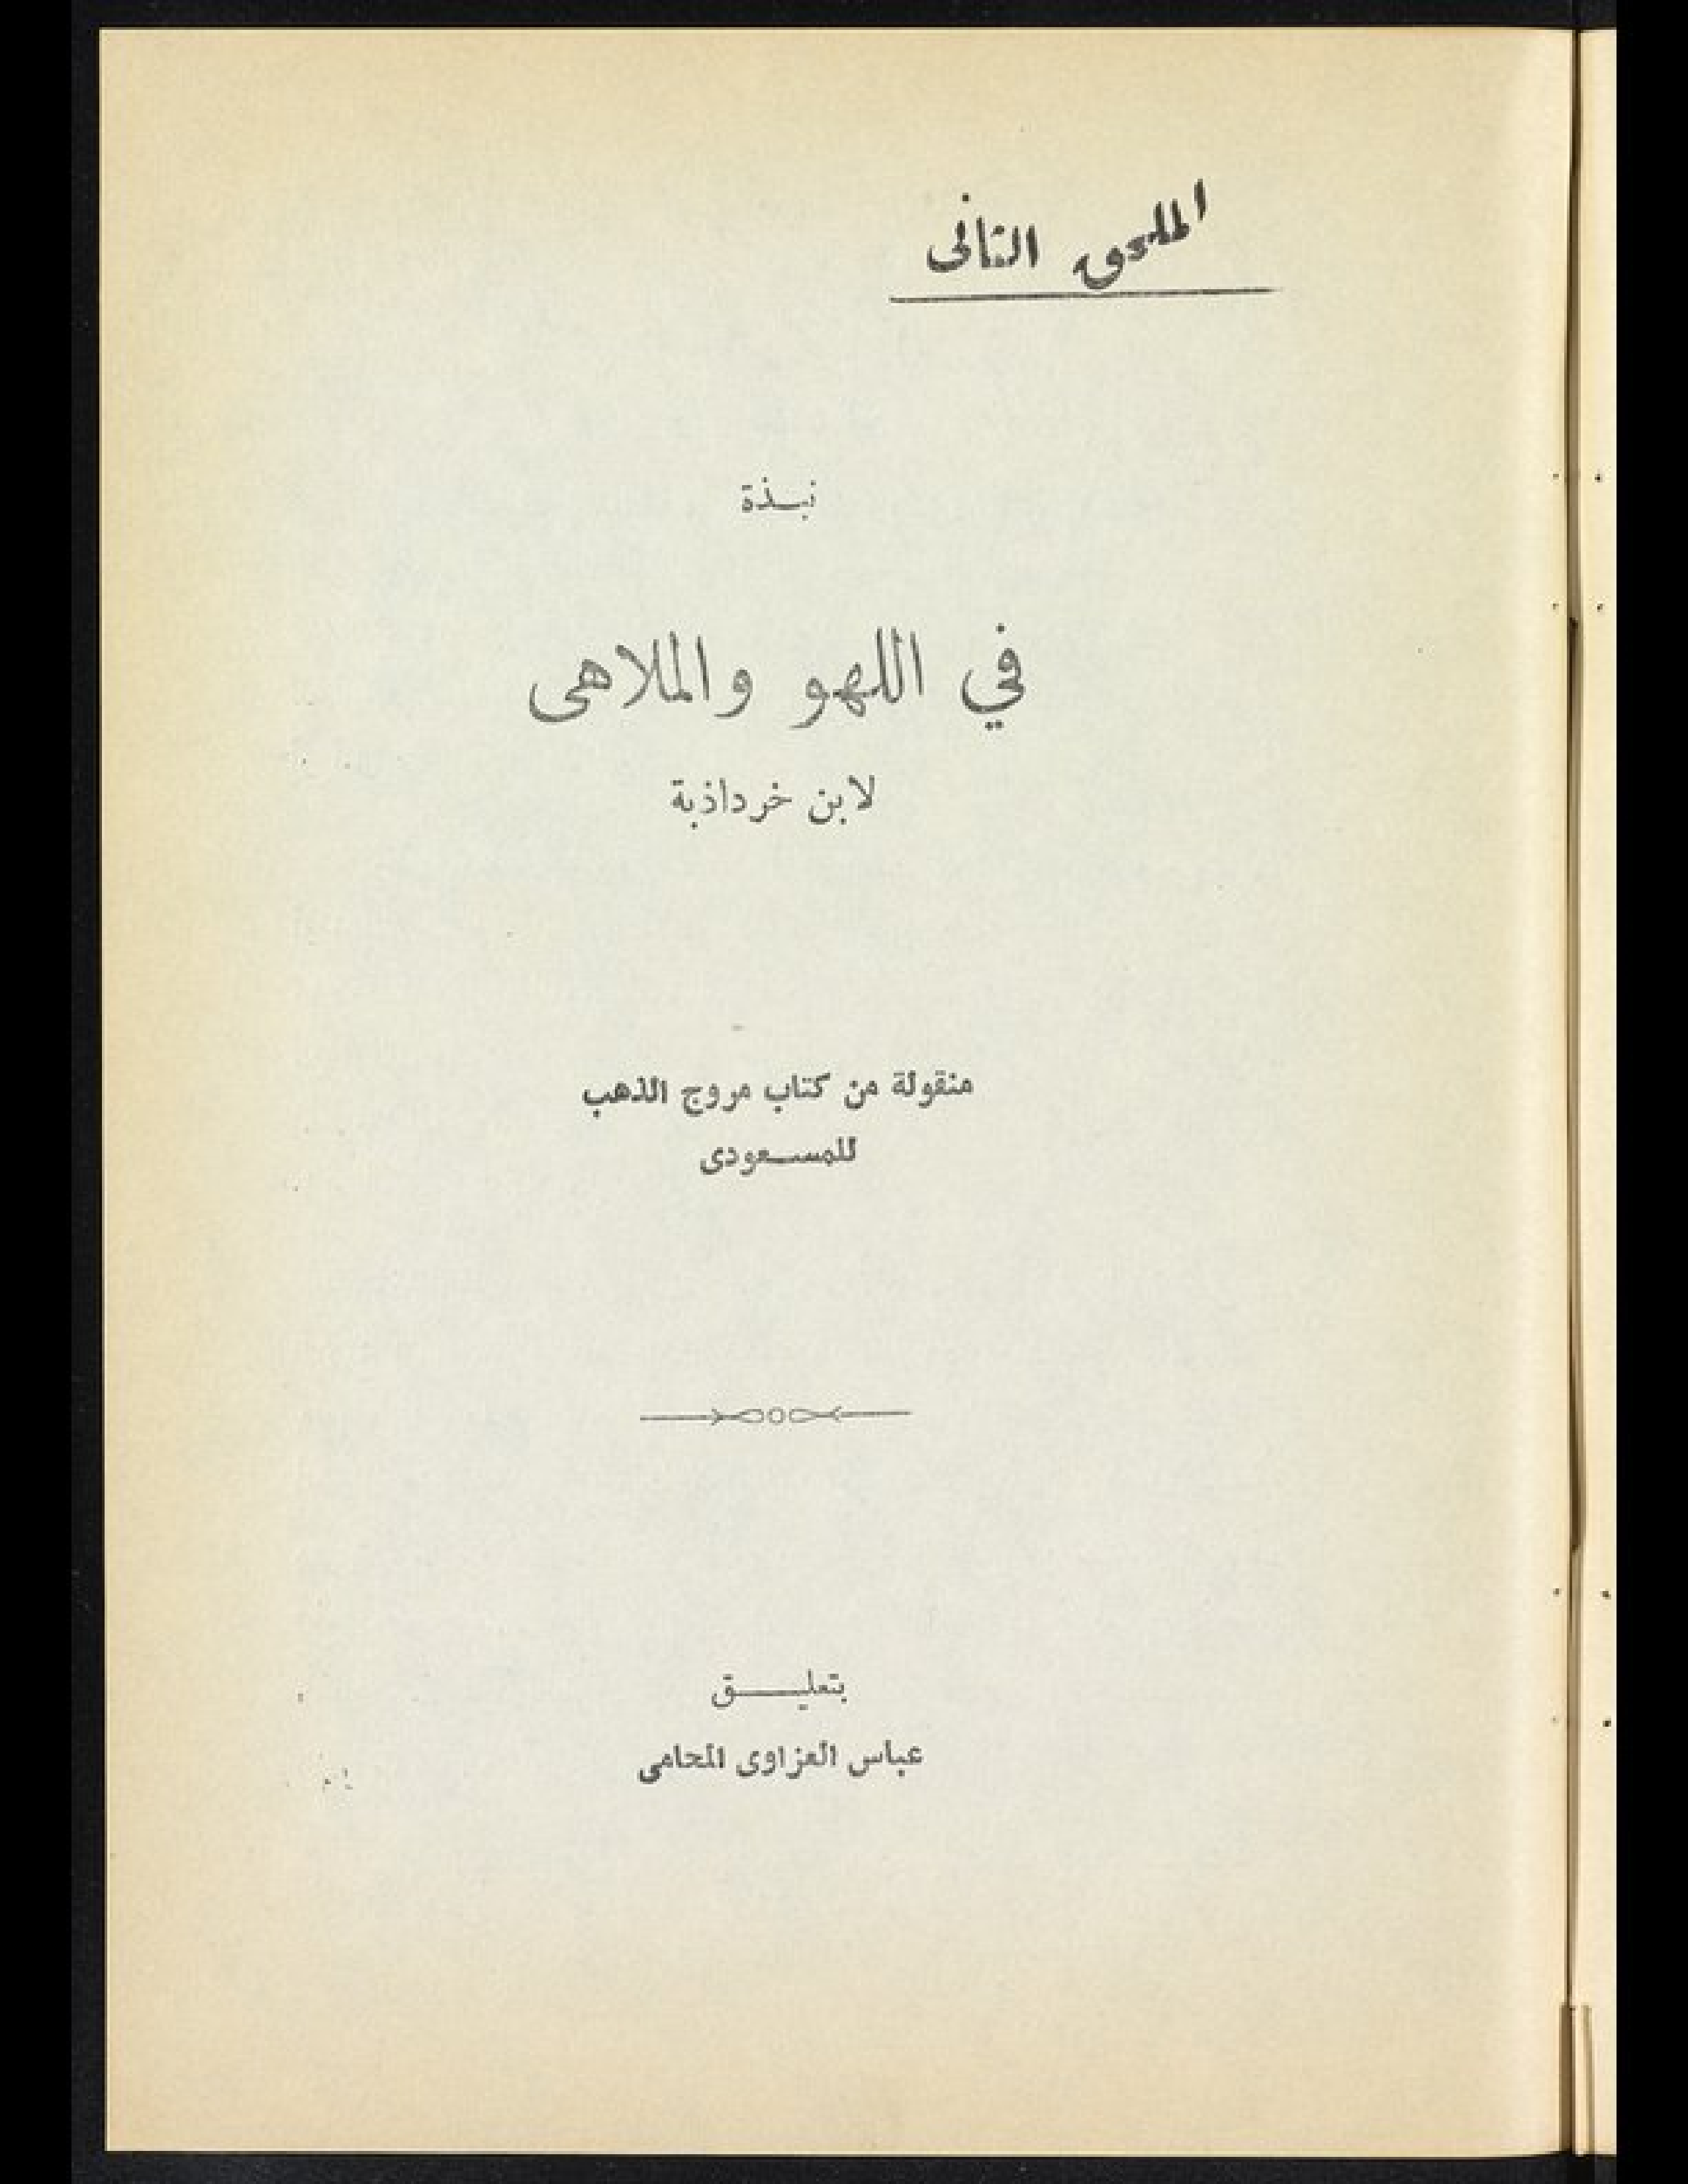 الملحق الثانى
نبذة
في اللهو والملاهى
لابن خرداذبة
منقولة من كتاب مروج الذهب
للمسعودى
بتعليق
عباس العزاوى المحامى